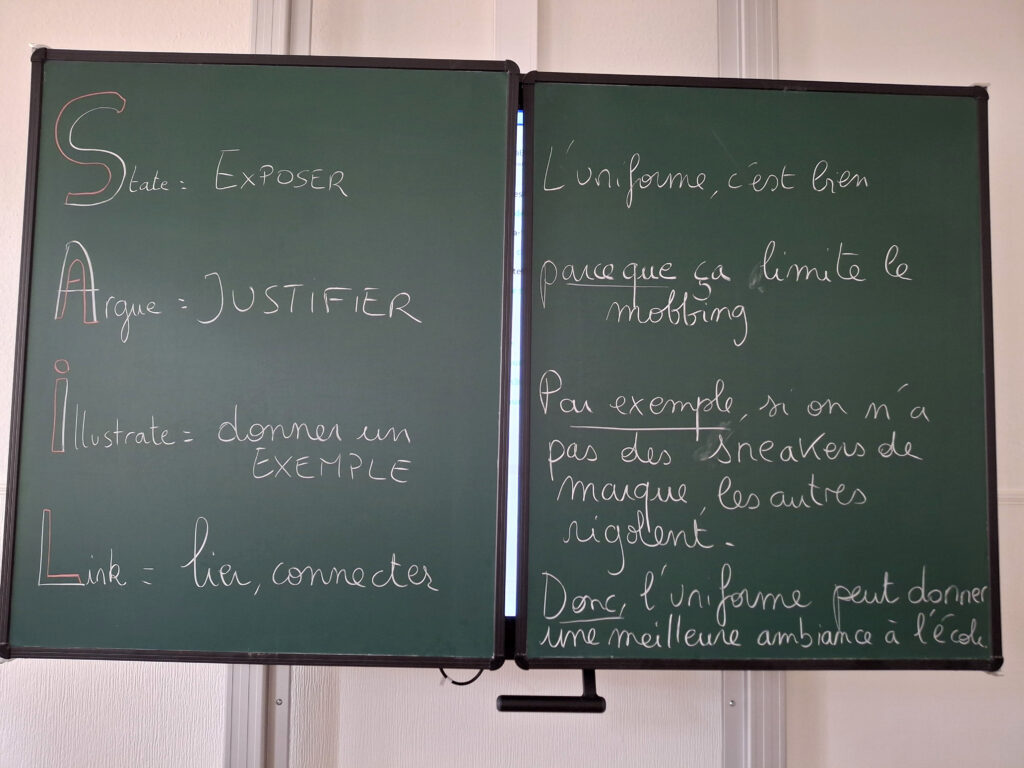 State = EXPOSER
Argue = JUSTIFIER
Illustrate = donner un
EXEMPLE
Link = lier, connecter
L'uniforme, c'est bien
parce que ça limite le
mobbing
Par exemple, si on n'a
pas des sneakers de
marque, les autres
rigolent.
Donc, l'uniforme peut donner
une meilleure ambiance à l'école